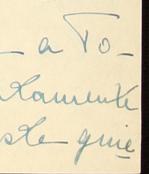 a To-
xamente
ste que